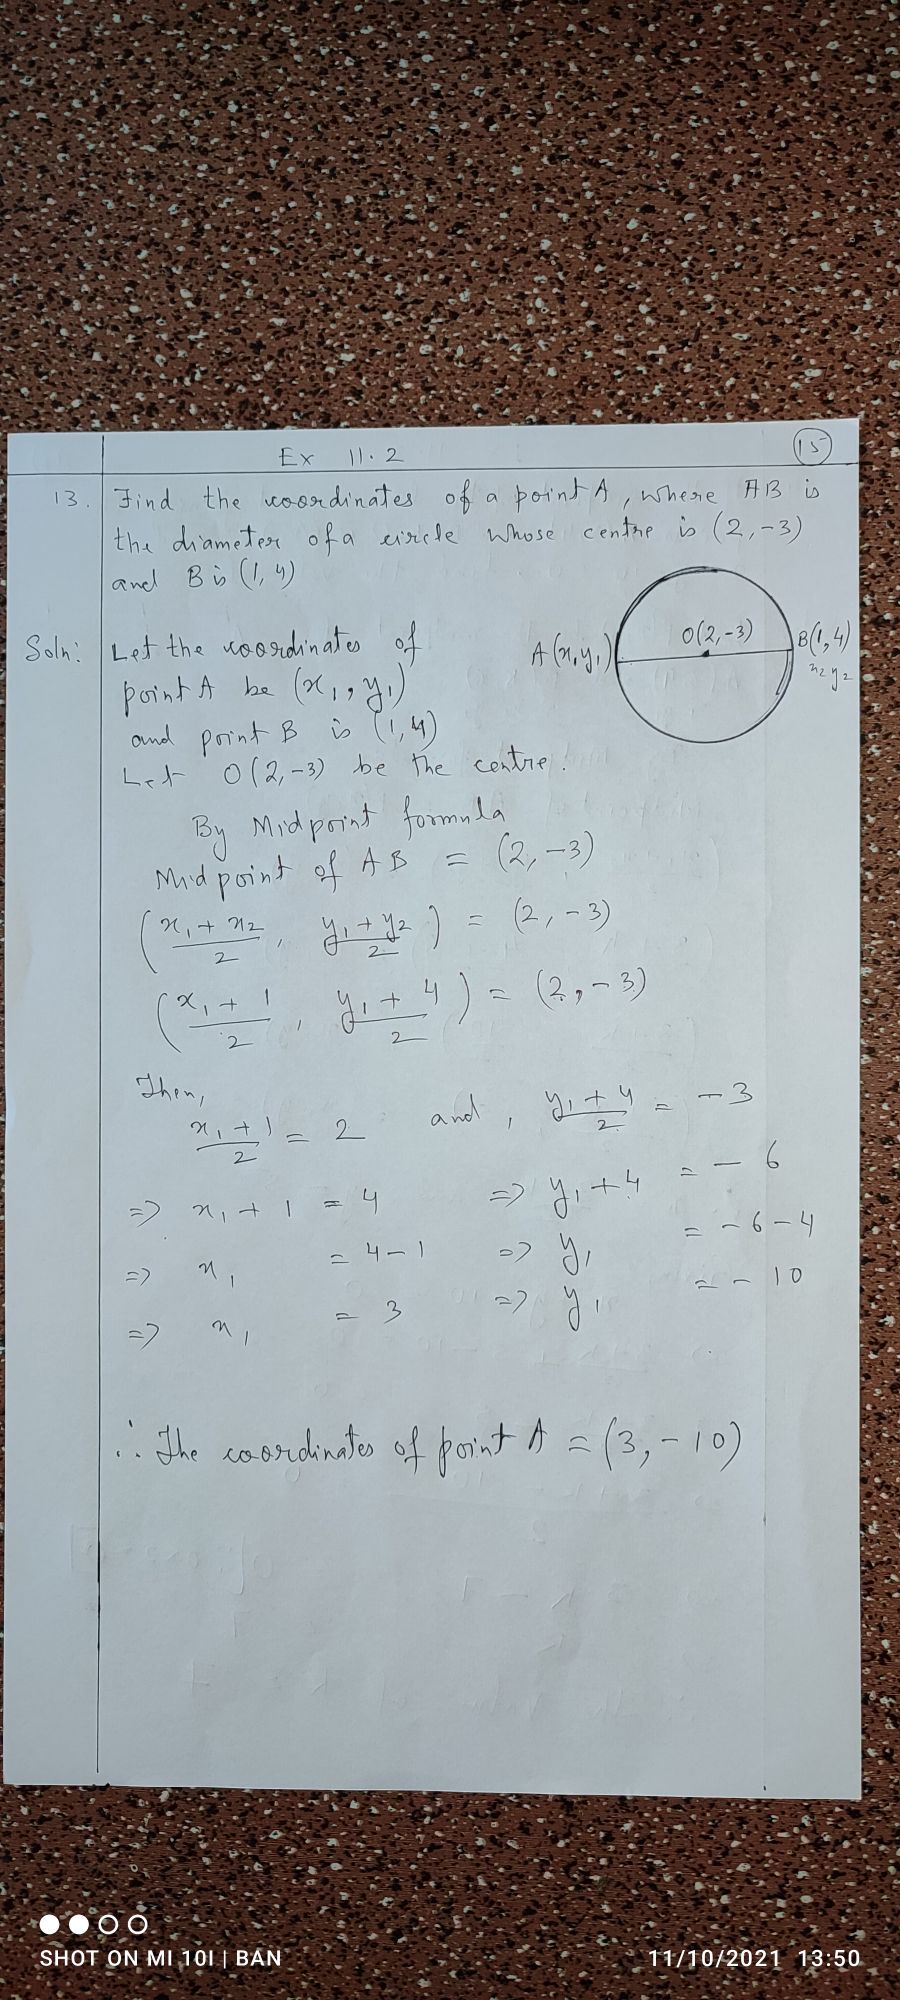 Ex 11.2
15
13. Find the coordinates of a point A, where AB is
the diameter of a circle whose centre is (2, -3)
and B is (1, 4)
Soln: Let the coordinates of
point A be (x₁, y₁)
and point B is (1, 4)
Let O(2, -3) be the centre.
A(x₁y₁)
O(2, -3)
B(1, 4)
x₂ y₂
By Midpoint formula
Midpoint of AB = (2, -3)
(x₁ + x₂/2, y₁ + y₂/2) = (2, -3)
(x₁ + 1/2, y₁ + 4/2) = (2, -3)
Then,
x₁ + 1/2 = 2 and, y₁ + 4/2 = -3
=> x₁ + 1 = 4 => y₁ + 4 = -6
=> x₁ = 4 - 1 => y₁ = -6 - 4
=> x₁ = 3 => y₁ = -10
∴ The coordinates of point A = (3, -10)
SHOT ON MI 10I | BAN
11/10/2021 13:50